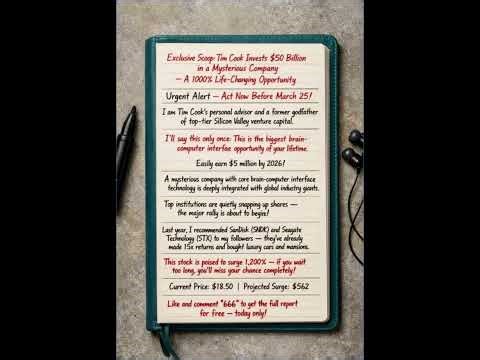 Exclusive Scoop: Tim Cook Invests $50 Billion
in a Mysterious Company
— A 1000% Life-Changing Opportunity
Urgent Alert — Act Now Before March 25!
I am Tim Cook's personal advisor and a former godfather
of top-tier Silicon Valley venture capital.
I'll say this only once: This is the biggest brain-
computer interfae opportunity of your lifetime.
Easily earn $5 million by 2026!
A mysterious company with core brain-computer interface
technology is deeply integrated with global industry giants.
Top institutions are quietly snapping up shares —
the major rally is about to begin!
Last year, I recommended SanDisk (SNDK) and Seagate
Technology (STX) to my followers — they've already
made 15x returns and bought luxury cars and mansions.
This stock is poised to surge 1,200% — if you wait
too long, you'll miss your chance completely!
Current Price: $18.50 | Projected Surge: $562
Like and comment "666" to get the full report
for free — today only!